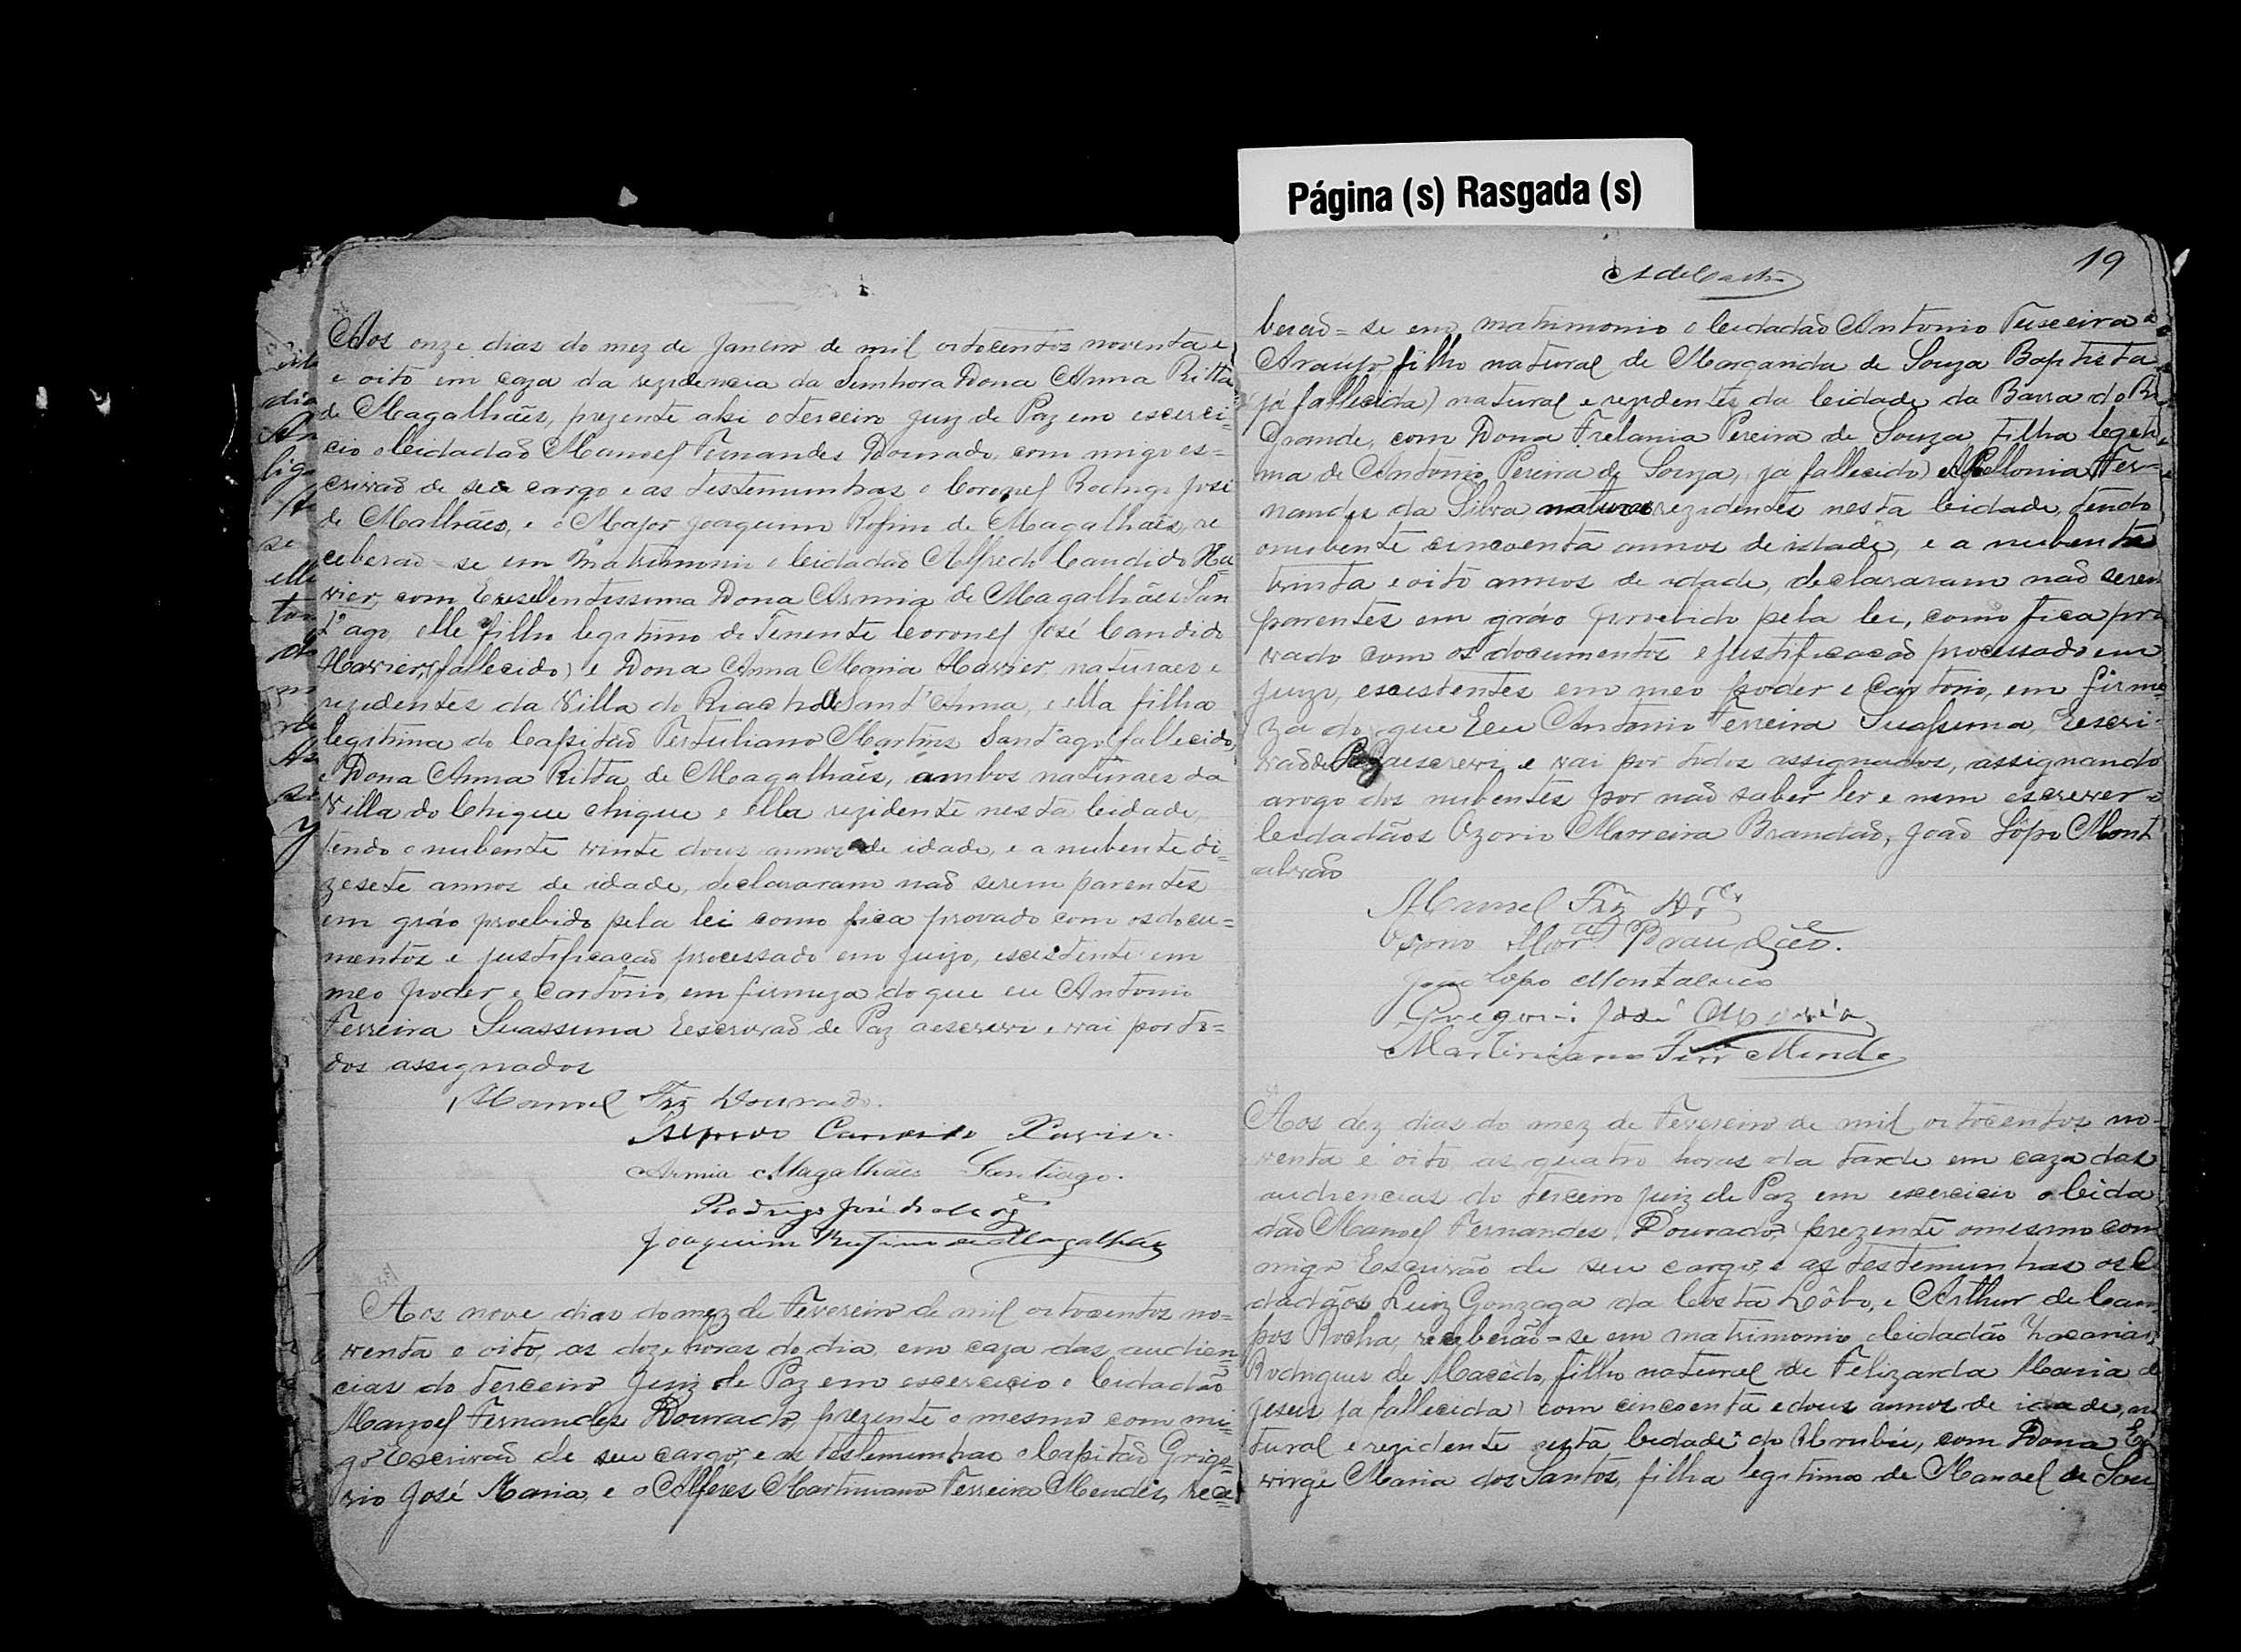 Página (s) Rasgada (s)
Aos onze dias do mez de Janeiro de mil oitocentos noventa e
e oito em caza da rezidencia da Senhora Dona Anna Ritta
de Magalhães, prezente ahi o terceiro juiz de Paz em escerci=
cio o Cidadaõ Manoel Fernandes Dourado, com migo es=
crivaõ de seu cargo e as testemunhas o Coronel Rodrigo José
de Malhães, e o Major Joaquim Rofino de Magalhães, re
ceberaõ-se em matrimonio o Cidadaõ Alfredo Candido Xa=
vier, com Excellentissima Dona Armia de Magalhães San
t'ago, elle filho legitimo do Tenente Coronel José Candido
Xavier, (fallecido) e Dona Anna Maria Xavier, naturaes e
rezidentes da Villa do Riacho de Sant'Anna, e ella filha
legitima do Capitaõ Tertuliano Martins Sant'ago (fallecido)
e Dona Anna Ritta de Magalhães, ambos naturaes da
Villa do Chique chique e ella rezidente nesta Cidade,
tendo o nubente vinte dous annos de idade, e a nubente di=
zesete annos de idade, declararam naõ serem parentes
em gráo proebido pela lei como fica provado com os docu=
mentos e justificaçaõ processado em juizo, escistente em
meo poder e Cartorio, em firmeza do que eu Antonio
Ferreira Suassuna Escrivaõ de Paz aescrevi e vai por to=
dos assignados
Manoel Frz Dourado.
Alfredo Candido Xavier.
Armia Magalhães Santiago.
Rodrigo José de
Joaquim Rufino de Magalhães
Aos nove dias do mez de Fevereiro de mil oitocentos no=
venta e oito, as doze horas do dia em caza das audien=
cias do terceiro Juiz de Paz em escercicio o Cidadão
Manoel Fernandes Dourado, prezente o mesmo com mi=
go Escrivaõ de seu cargo, e as testemunhas o Capitaõ Grigo=
rio José Maria, e o Alferes Martiniano Ferreira Mendes, rece=
19
beraõ=se em matrimonio o Cidadaõ Antonio Teixeira
Araujo filho natural de Margarida de Souza Baptista
já fallecida) natural e rezidentes da Cidade da Barra do
Grande, com Dona Frelania Pereira de Souza, filha legeti
ma de Antonio Pereira de Souza, já fallecido) e Apellonia Fer=
nandes da Silva naturaes rezidentes nesta Cidade, tendo
o nubente cincoenta annos de idade, e a nubente
trinta e oito annos de idade, declararam naõ serem
parentes em gráo proebido pela lei, como fica pro
vado com os documentos e justificaçaõ processado em
juizo, escistentes em meo poder e Cartorio, em firme
za do que Eeu Antonio Ferreira Suassuna, Escri=
vaõ de Paz aescrevi e vai por todos assignados, assignando
arogo dos nubentes por naõ saber ler e nem escrever o
Cidadãos Ozorio Moreira Brandaõ, Joaõ Lôpo Mont
alvaõ
Manoel Frz
Osorio Mor.ª Brandão.
João Lopo Montalvão
Gregorio José Maria
Martiniano Ferr.ª Mendes
Aos dez dias do mez de Fevereiro de mil oitocentos no=
venta e oito as quatro horas da tarde em caza das
audiencias do terceiro Juiz de Paz em escercicio o Cida
daõ Manoel Fernandes Dourado, prezente o mesmo com
migo Escrivão de seu cargo, e as testemunhas os Ci
dadãos Luiz Gonzaga da Costa Lôbo, e Arthur de Cam
pos Rocha, receberão=se em matrimonio o Cidadão Zacarias
Rodrigues de Macêdo, filho natural de Felizarda Maria de
Jesus já fallecida) com cincoenta e dous annos de idade, na
tural e rezidente nesta Cidade do Urubú, com Dona
virge Maria dos Santos, filha legitima de Manoel de Sou